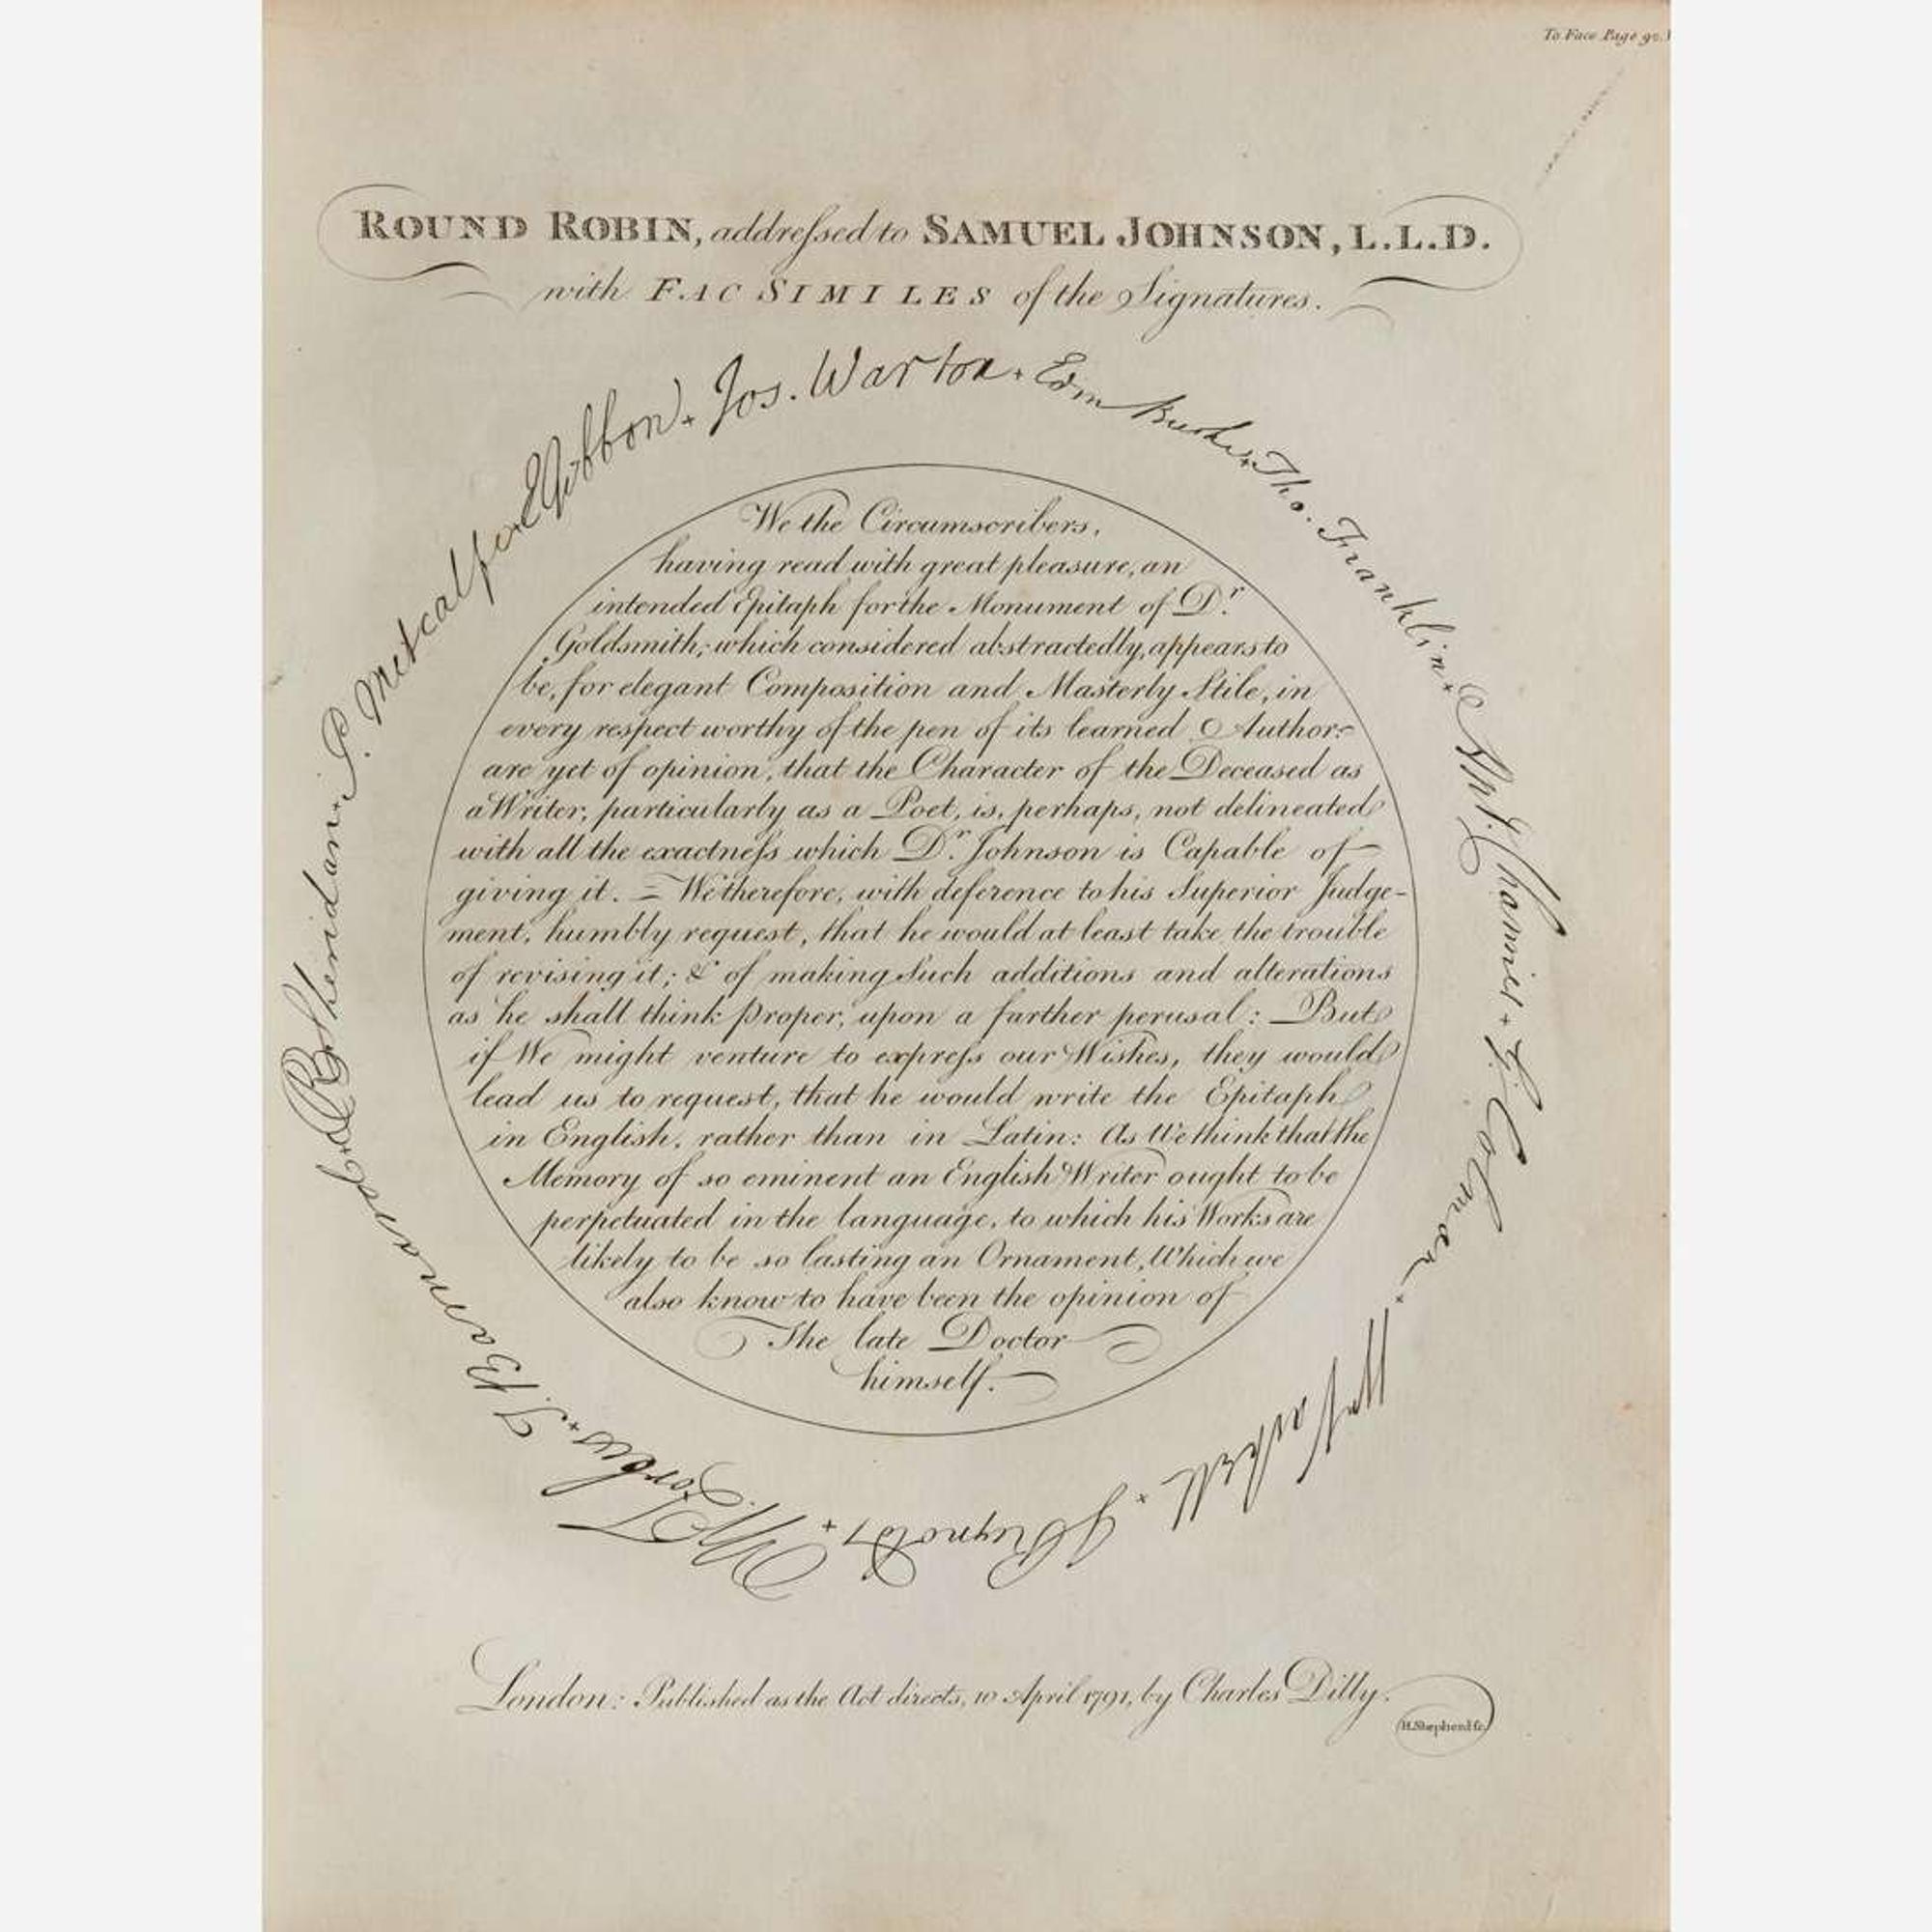 To Face Page 92.
ROUND ROBIN, addressed to SAMUEL JOHNSON, L.L.D.
with FAC SIMILES of the Signatures.
Jos. Warton + Edm Burke + Tho. Franklin + Ant. Chamier + G. Colman + Vachell + J Reynolds + W. Forbes + T. Barnard + R B Sheridan + P. Metcalfe + E Gibbon +
We the Circumscribers,
having read with great pleasure, an
intended Epitaph for the Monument of Dr.
Goldsmith; which considered abstractedly, appears to
be, for elegant Composition and Masterly Stile, in
every respect worthy of the pen of its learned Author:
are yet of opinion, that the Character of the Deceased as
a Writer; particularly as a Poet, is, perhaps, not delineated
with all the exactness which Dr. Johnson is Capable of
giving it. = We therefore, with deference to his Superior Judge-
ment, humbly request, that he would at least take the trouble
of revising it; & of making Such additions and alterations
as he shall think proper, upon a farther perusal: But
if We might venture to express our Wishes, they would
lead us to request, that he would write the Epitaph
in English, rather than in Latin: As We think that the
Memory of so eminent an English Writer ought to be
perpetuated in the language, to which his Works are
likely to be so lasting an Ornament, Which we
also know to have been the opinion of
The late Doctor
himself.
London: Published as the Act directs, 10 April 1791, by Charles Dilly.
H. Shepherd sc.